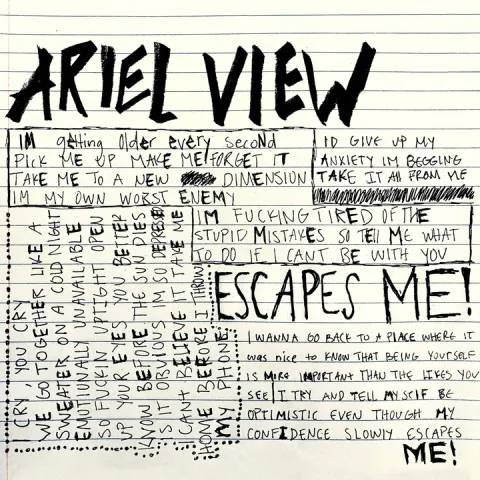 ARIEL VIEW
IM getting older every secoNd
PICK ME UP MAKE ME FORGET IT
TAKE ME TO A NEW DIMENSION
IM MY OWN WORST ENEMY
ID GIVE UP MY
ANXIETY IM BEGGING
TAKE IT All FROM ME
IM FUCKING TIRED OF THE
STUPID MISTAKES SO TEll ME WHAT
TO DO IF I CANT BE WITH YOU
CRY, YOU CRY
WE GO TOGETHER LIKE A
SWEATER ON A COLD NIGHT
EMOTIONALLY UNAVAILABLE
SO FUCKIN UPTIGHT OPEN
UP YOUR EYES YOU BETTER
KNOW BEFORE THE SUN DIES
IS IT OBVIOUS IM SO DEPRESSED
I CANT BELIEVE IT TAKE ME
HOME BEFORE I THROW
MY PHONE
ESCAPES ME!
I WANNA GO BACK TO A PlACE WHERE IT
was nice to KNOW THAT BEING YOURSELF
IS MORE IMPORTANT THAN THE LIKES YOU
SEE I TRY AND TELL MYSElF BE
OPTIMISTIC EVEN THOUGH MY
CONFIDENCE SLOWlY ESCAPES
ME!